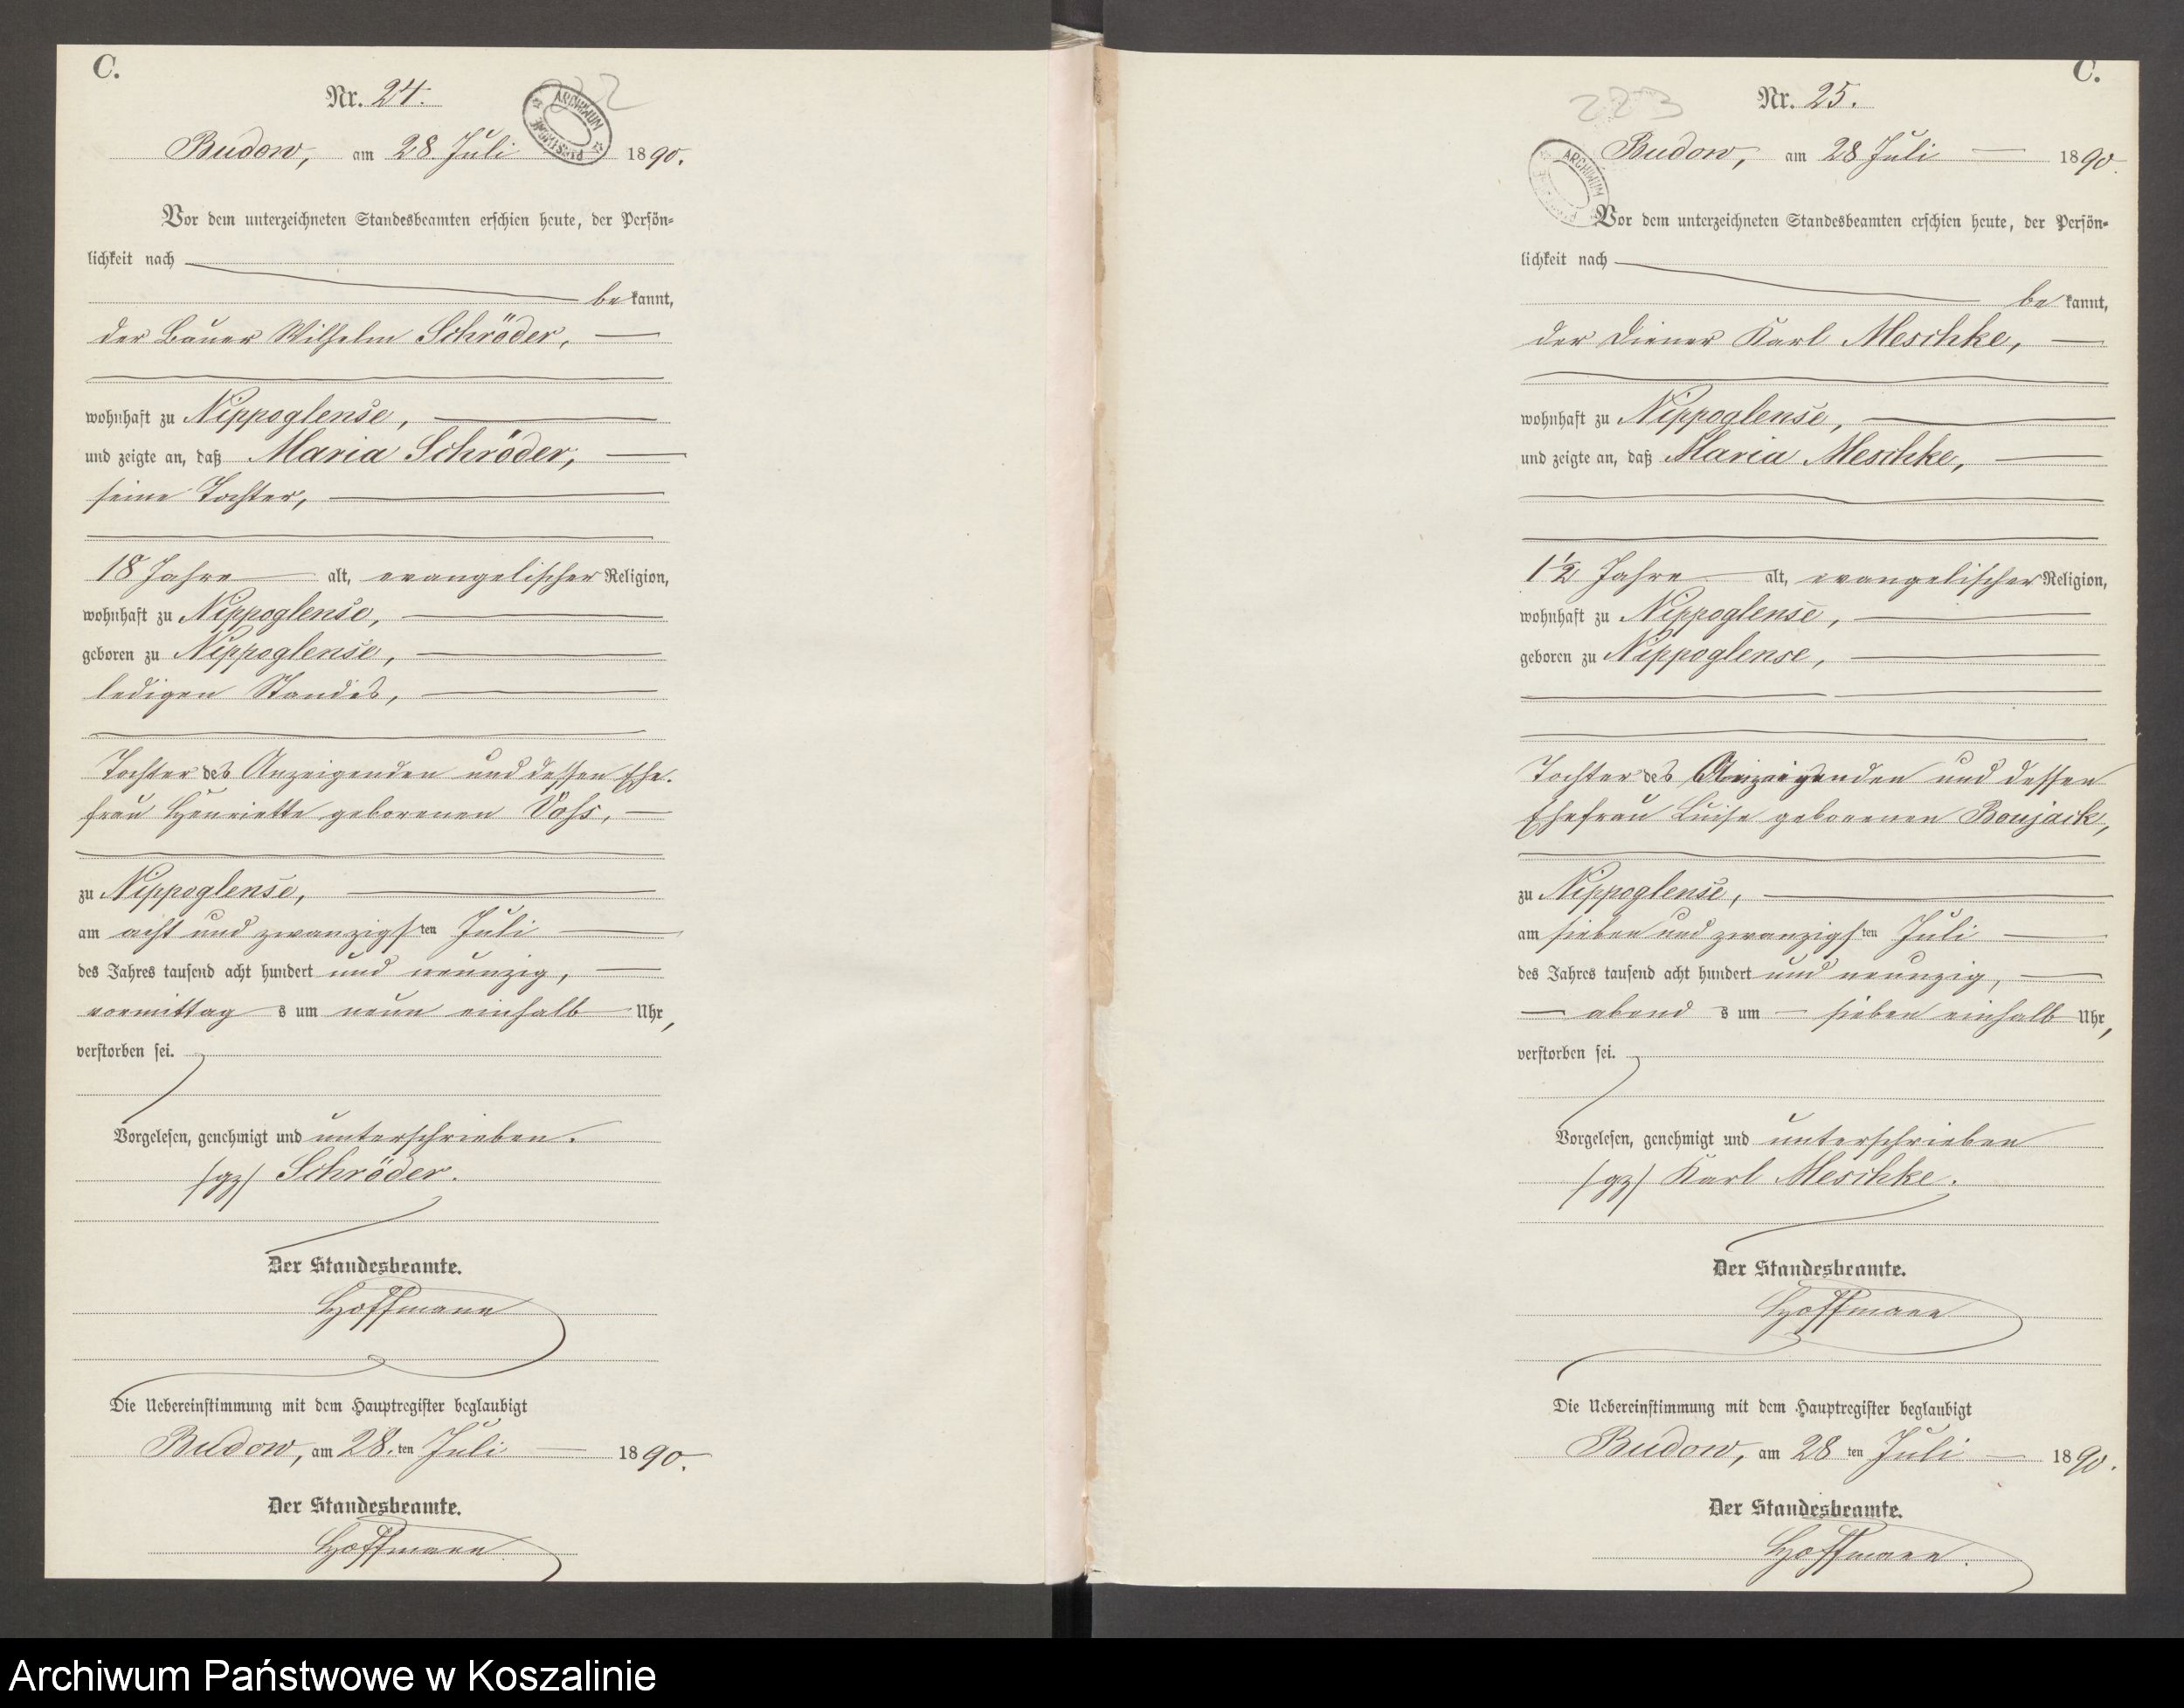 C.
Nr. 24.
Budow, am 28. Juli 1890.
Vor dem unterzeichneten Standesbeamten erschien heute, der Persön-
lichkeit nach
be kannt,
der Bauer Wilhelm Schröder,
wohnhaft zu Nippoglense,
und zeigte an, daß Maria Schröder,
seine Tochter,
18 Jahre alt, evangelischer Religion,
wohnhaft zu Nippoglense,
geboren zu Nippoglense,
ledigen Standes,
Tochter des Anzeigenden und dessen Ehe-
frau Henriette geborenen Voss,
zu Nippoglense,
am acht und zwanzigsten Juli
des Jahres tausend acht hundert und neunzig,
vormittag s um neun einhalb Uhr,
verstorben sei.
Vorgelesen, genehmigt und unterschrieben.
(gz) Schröder.
Der Standesbeamte.
Hoffmann
Die Uebereinstimmung mit dem Hauptregister beglaubigt
Budow, am 28. ten Juli 1890.
Der Standesbeamte.
Hoffmann.
ARCHIWUM
C.
223
Nr. 25.
Budow, am 28 Juli 1890.
ARCHIWUM
Vor dem unterzeichneten Standesbeamten erschien heute, der Persön-
lichkeit nach
be kannt,
der Diener Karl Meschke,
wohnhaft zu Nippoglense,
und zeigte an, daß Maria Meschke,
1 1/2 Jahre alt, evangelischer Religion,
wohnhaft zu Nippoglense,
geboren zu Nippoglense,
Tochter des Anzeigenden und dessen
Ehefrau Luise geborenen Bonjack,
zu Nippoglense,
am sieben und zwanzigsten Juli
des Jahres tausend acht hundert und neunzig,
abend s um sieben einhalb Uhr,
verstorben sei.
Vorgelesen, genehmigt und unterschrieben
(gz) Karl Meschke.
Der Standesbeamte.
Hoffmann
Die Uebereinstimmung mit dem Hauptregister beglaubigt
Budow, am 28 ten Juli 1890.
Der Standesbeamte.
Hoffmann.
Archiwum Państwowe w Koszalinie